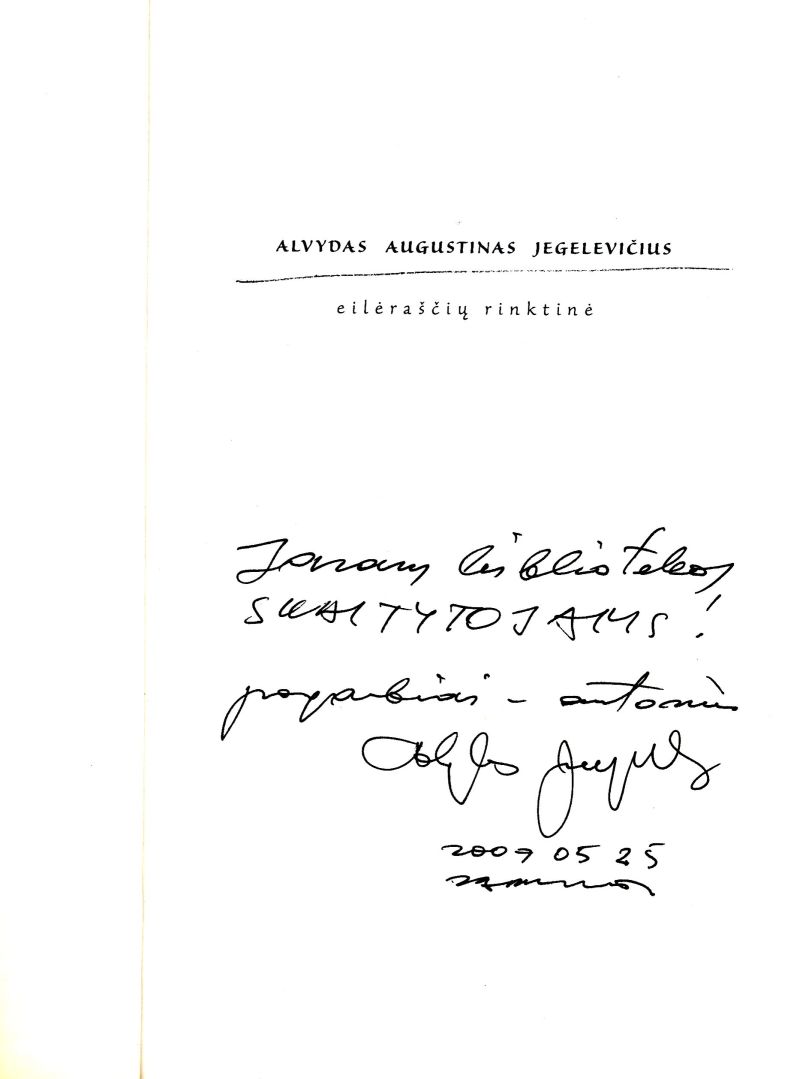 ALVYDAS AUGUSTINAS JEGELEVIČIUS
eilėraščių rinktinė
bibliotekos
SKAITYTOJAMS!
pagarbiai – autorius
2009 05 25